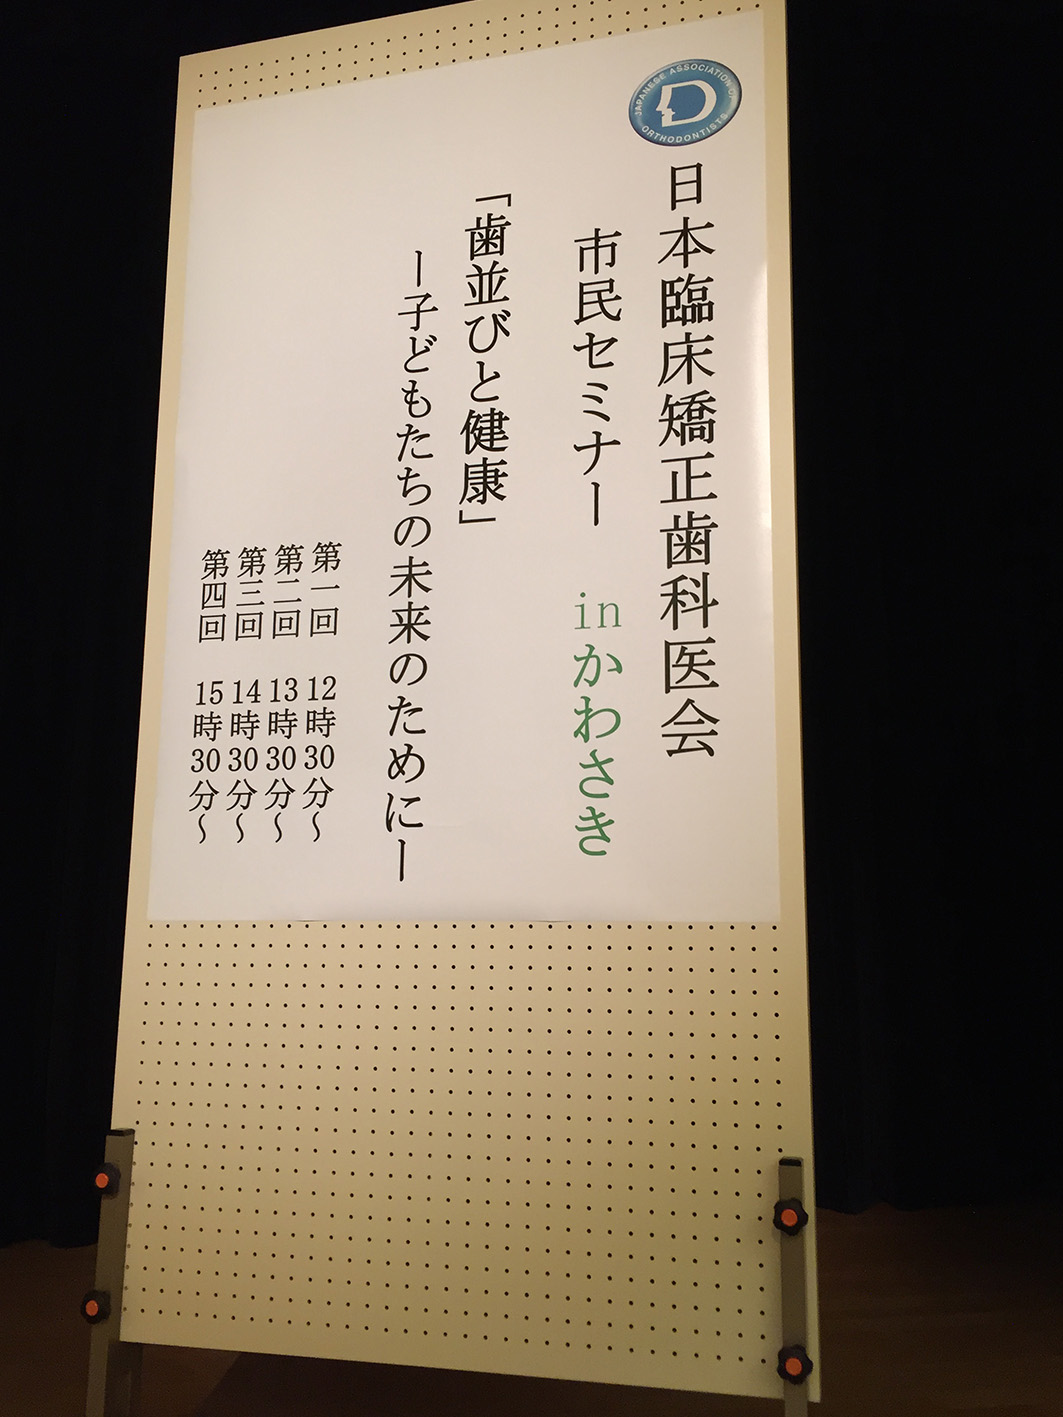 JAPANESE ASSOCIATION OF ORTHODONTISTS
日本臨床矯正歯科医会
市民セミナー inかわさき
「歯並びと健康」
ー子どもたちの未来のためにー
第一回 12時30分〜
第二回 13時30分〜
第三回 14時30分〜
第四回 15時30分〜